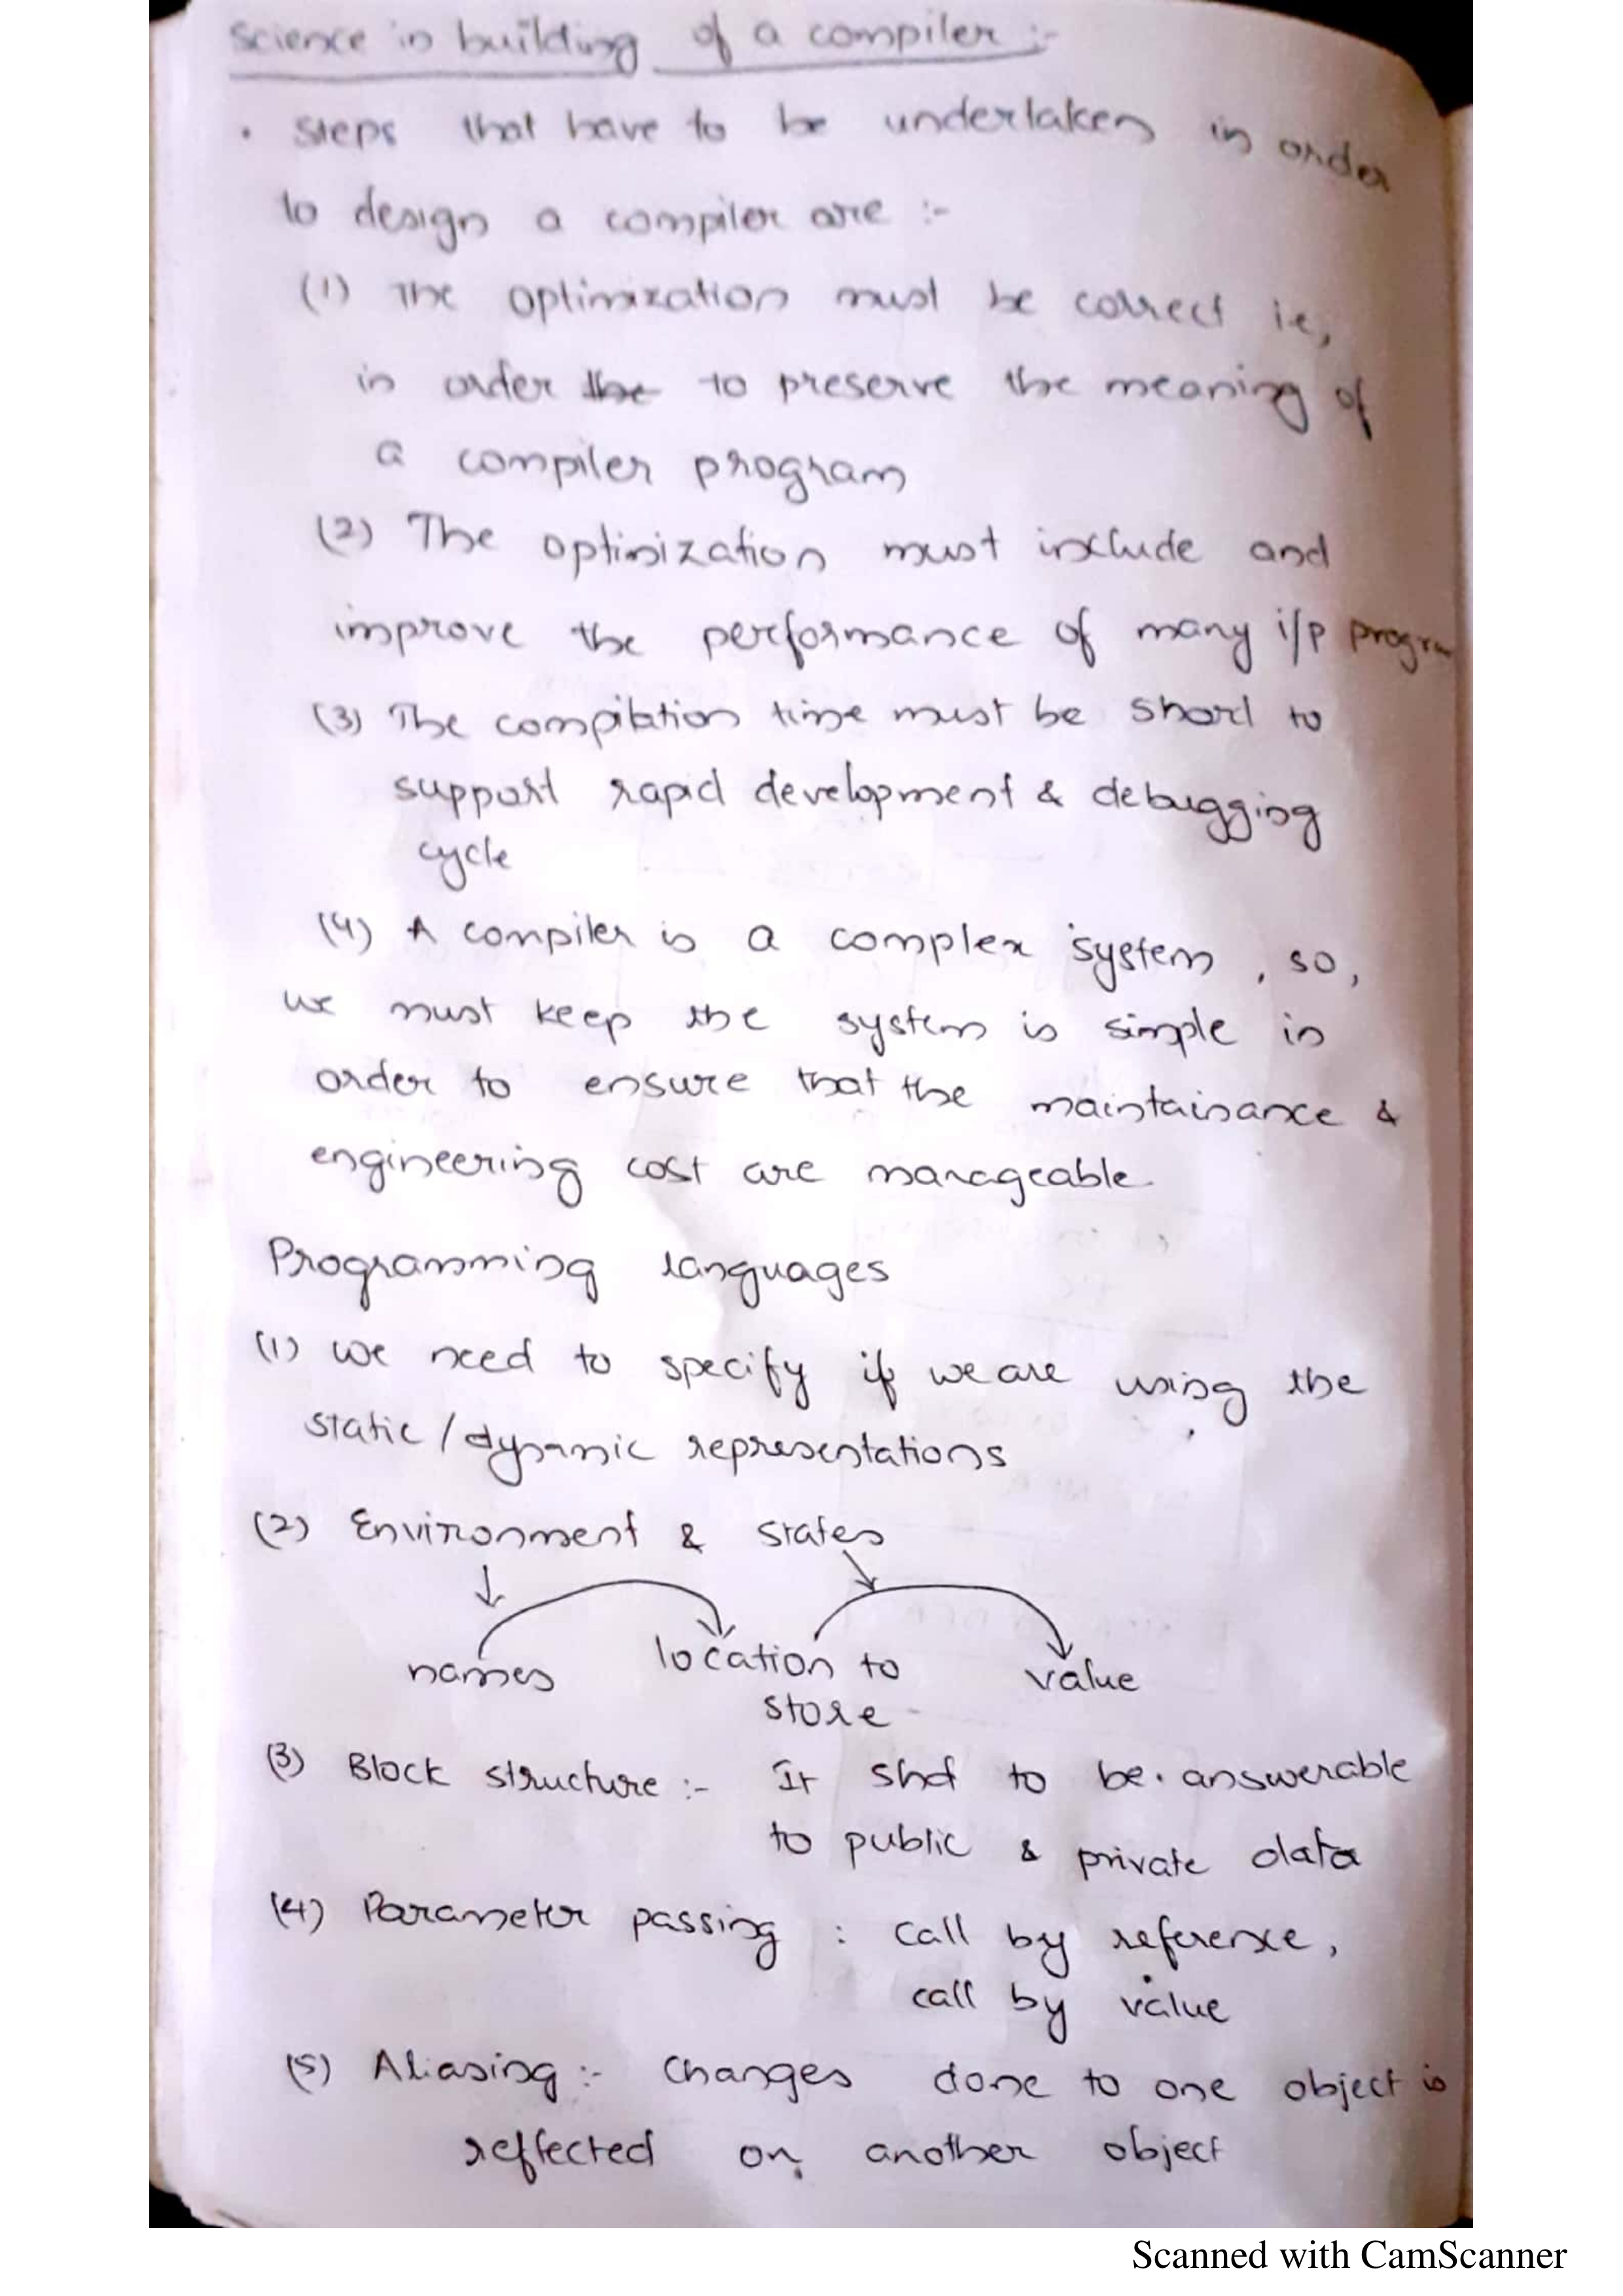 Science in building of a compiler :-
• Steps that have to be undertaken in order
to design a compiler are :-
(1) The optimization must be correct ie,
in order the to preserve the meaning of
a compiler program
(2) The optimization must include and
improve the performance of many i/p progra
(3) The compilation time must be short to
support rapid development & debugging
cycle
(4) A compiler is a complex system, so,
we must keep the system is simple in
order to ensure that the maintainance &
engineering cost are manageable.
Programming languages
(1) we need to specify if we are using the
static / dynamic representations
(2) Environment & states
names location to value
store
(3) Block structure :- It shd to be answerable
to public & private data
(4) Parameter passing : call by reference,
call by value
(5) Aliasing :- changes done to one object is
reflected on another object
Scanned with CamScanner